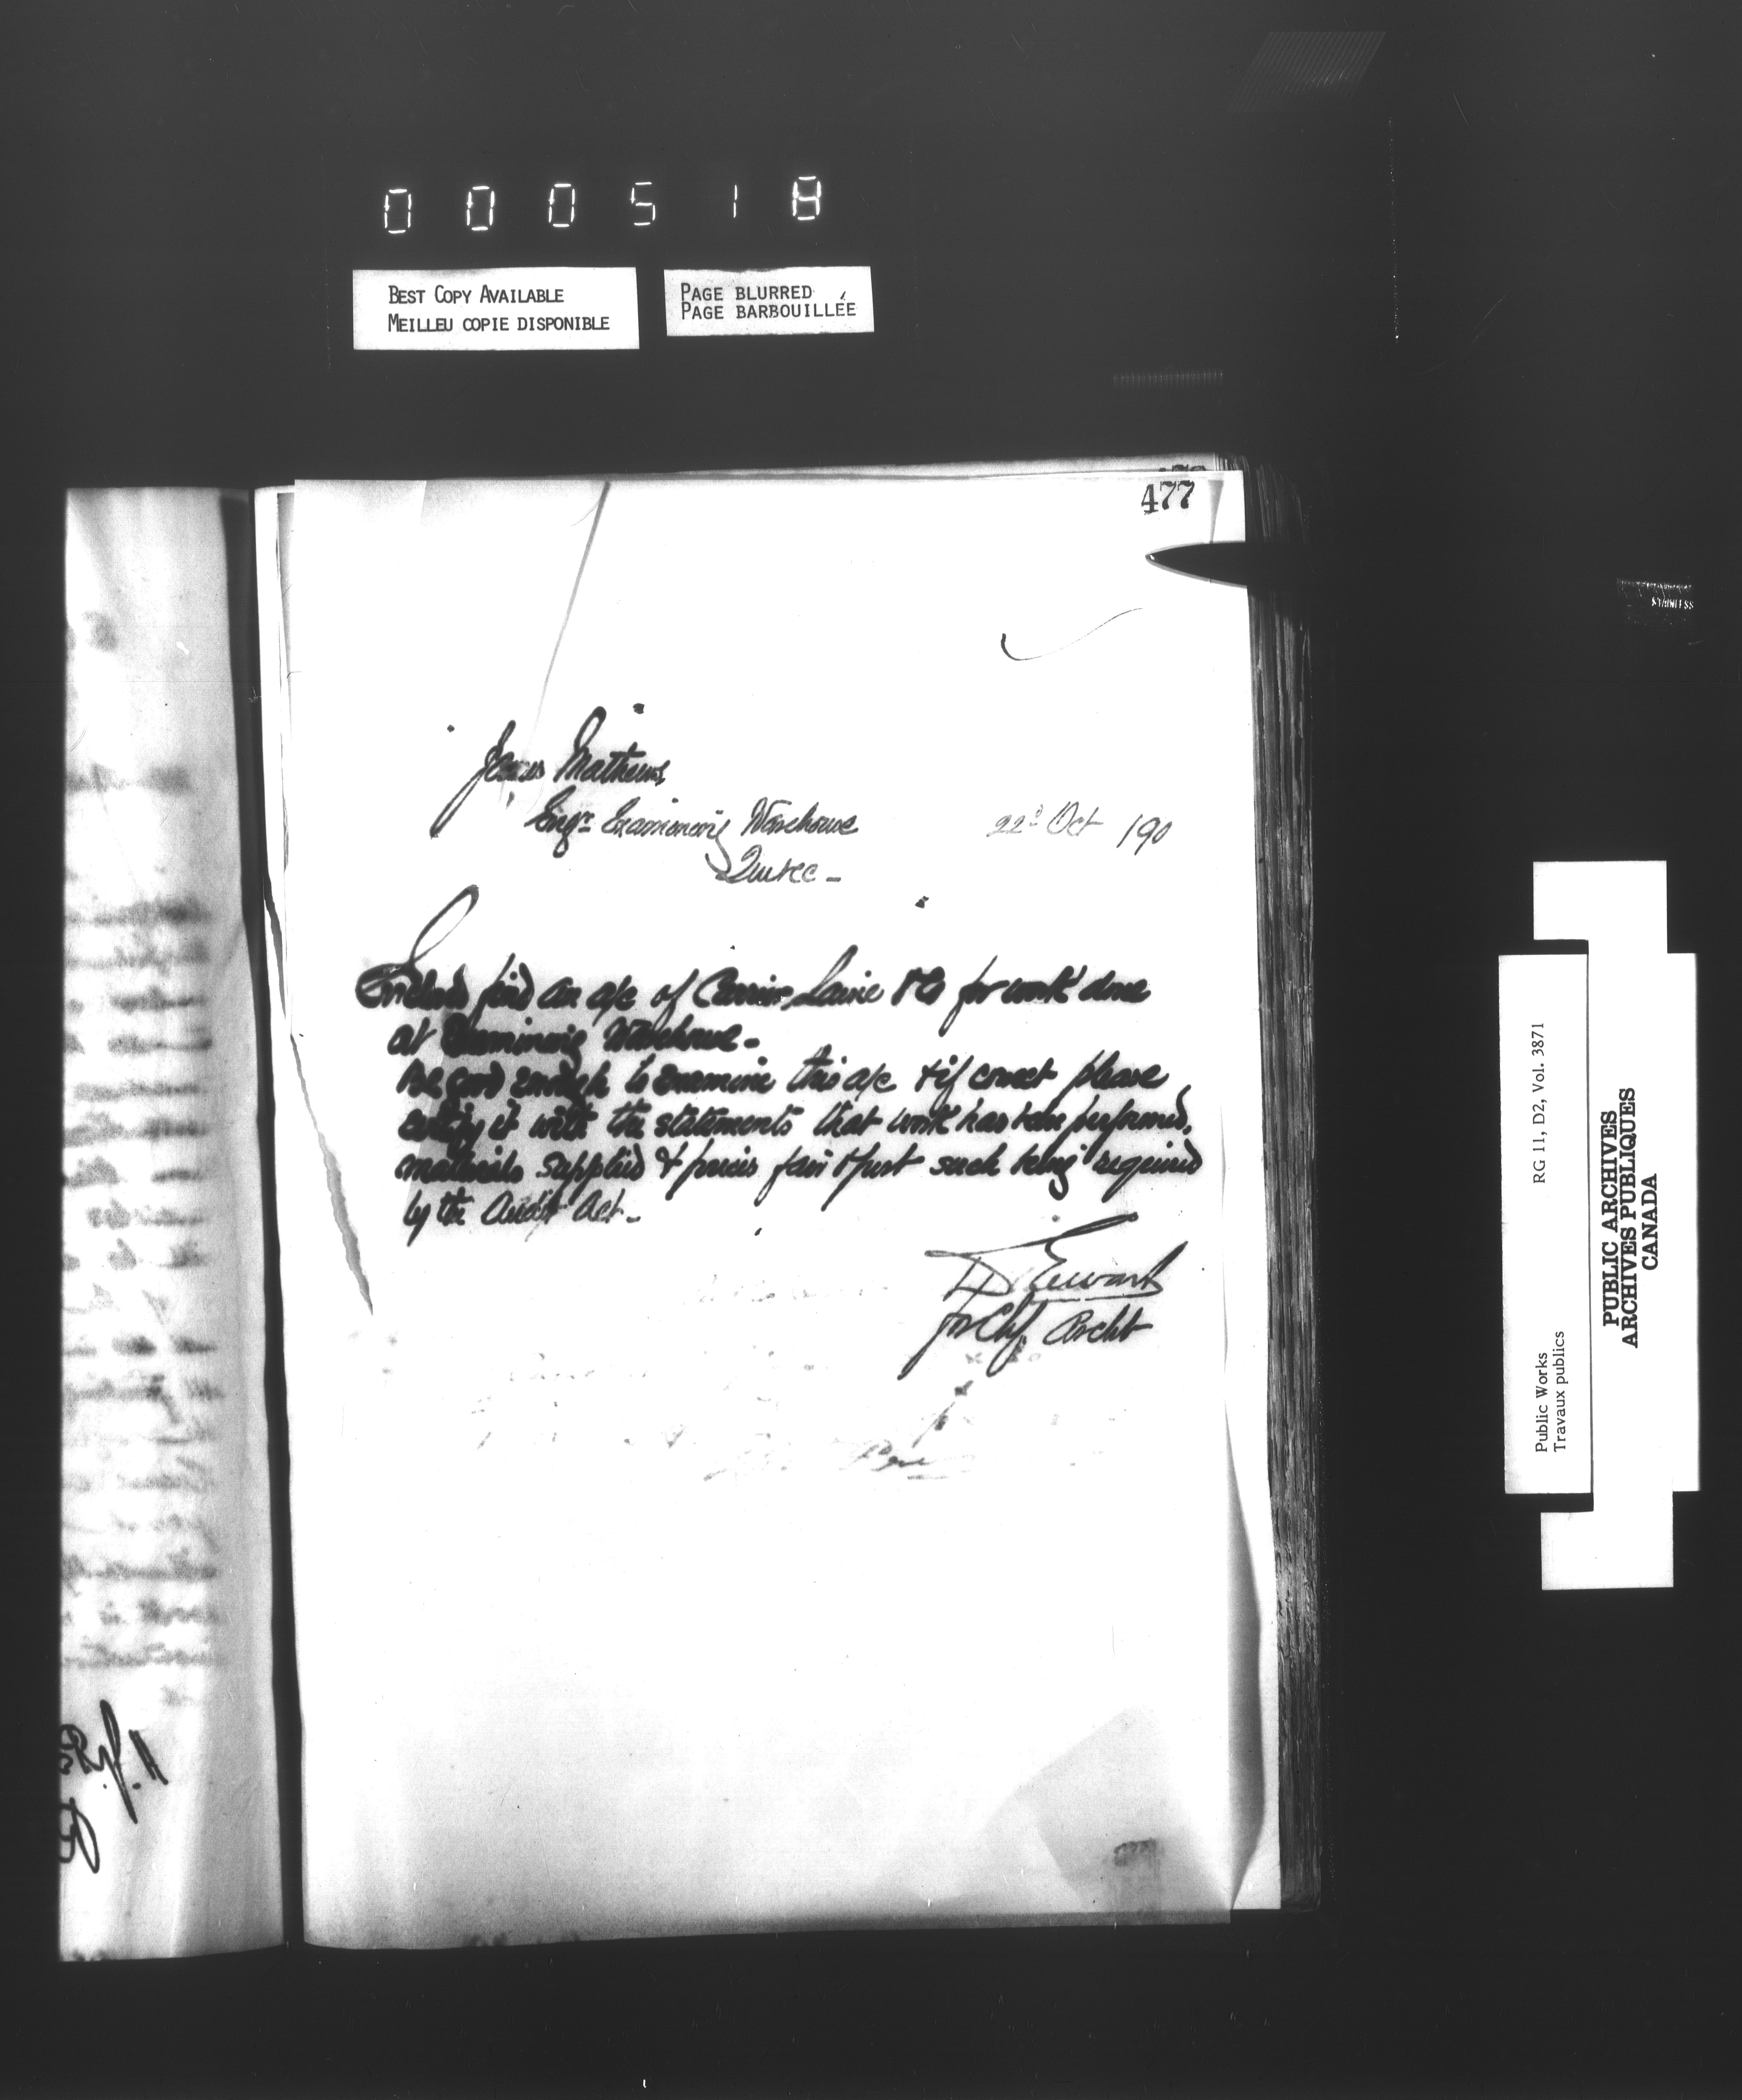 000518
BEST COPY AVAILABLE
MEILLEU COPIE DISPONIBLE
PAGE BLURRED
PAGE BARBOUILLÉE
477
James Mathews,
Engr. Examining Warehouse
22d Oct 190
Quebec -
Enclosed find an a/c of Carrier, Laine & Co for work done
at Examining Warehouse -
Be good enough to examine this a/c & if correct please
certify it with the statements that work has been performed,
materials supplied & prices fair & just such being required
by the Audit Act -
D Ewart
for Chf. Archt
RG 11, D2, Vol. 3871
Public Works
Travaux publics
PUBLIC ARCHIVES
ARCHIVES PUBLIQUES
CANADA
STAINLESS